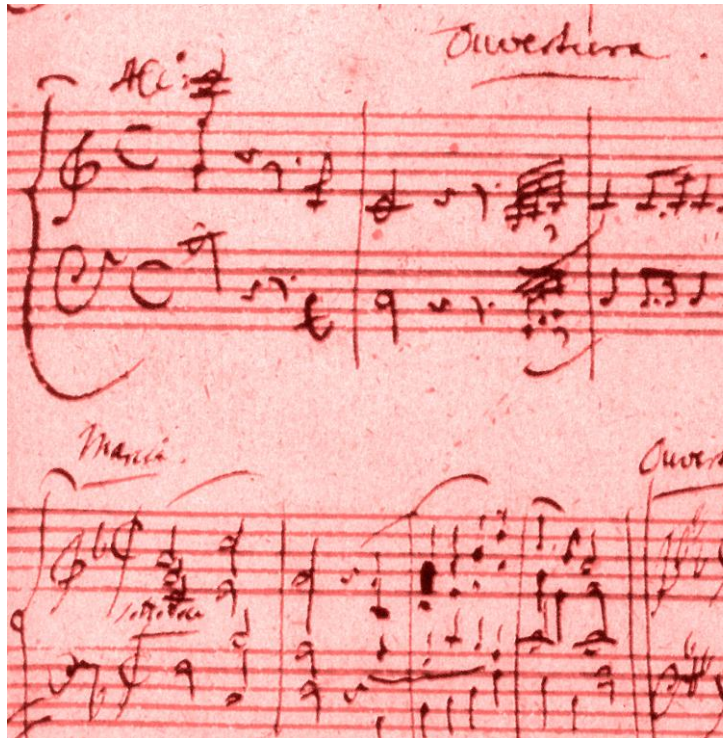 Ouvertura.
Marcia. Ouvert